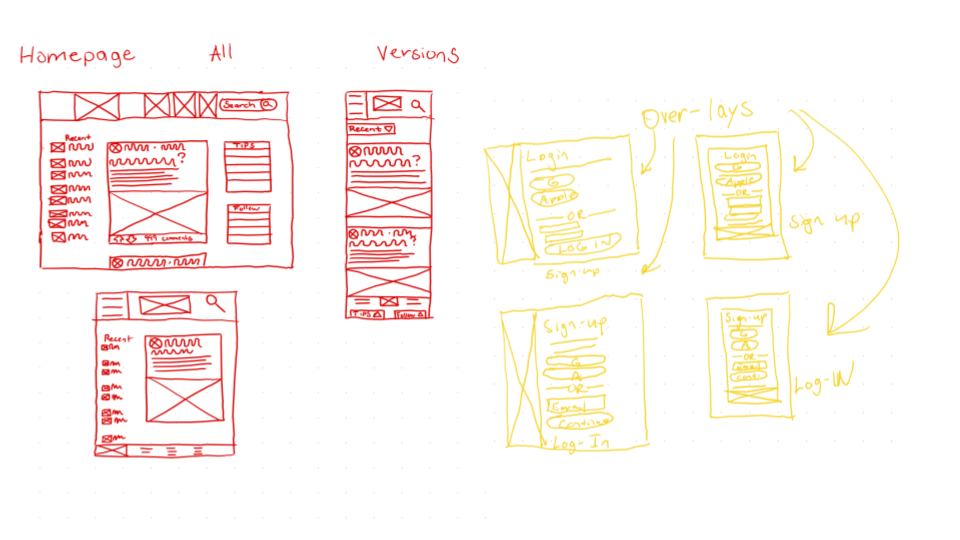 Homepage All Versions
Search
Recent
?
TIPS
Follow
Recent
?
?
TIPS
Follow
Recent
Over-lays
Login
G
Apple
OR
LOG IN
Sign-up
Login
G
Apple
OR
Sign up
Sign-up
G
A
OR
Email
Continue
Log-In
Sign-up
G
A
OR
Email
Log-IN